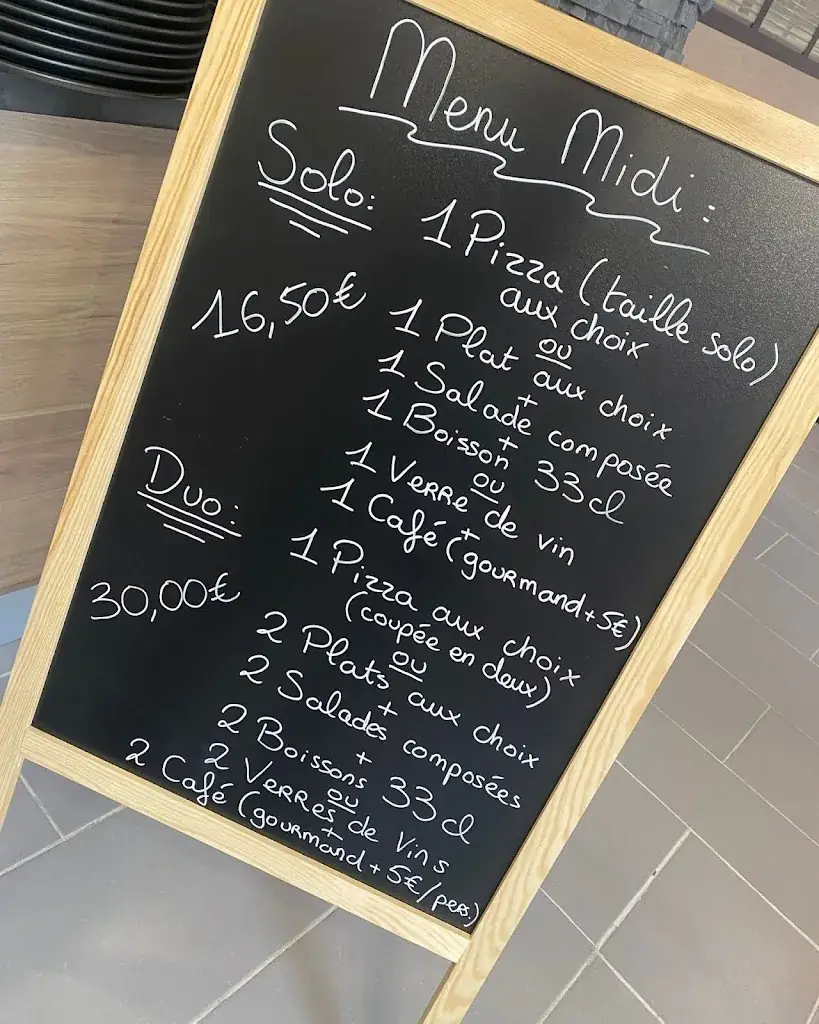 Menu Midi :
Solo:
16,50€
1 Pizza (taille solo)
aux choix
ou
1 Plat aux choix
+
1 Salade composée
+
1 Boisson 33cl
ou
1 Verre de vin
+
1 Café (gourmand + 5€)
Duo:
30,00€
1 Pizza aux choix
(coupée en deux)
ou
2 Plats aux choix
+
2 Salades composées
+
2 Boissons 33cl
ou
2 Verres de vins
+
2 Café (gourmand + 5€/pers.)